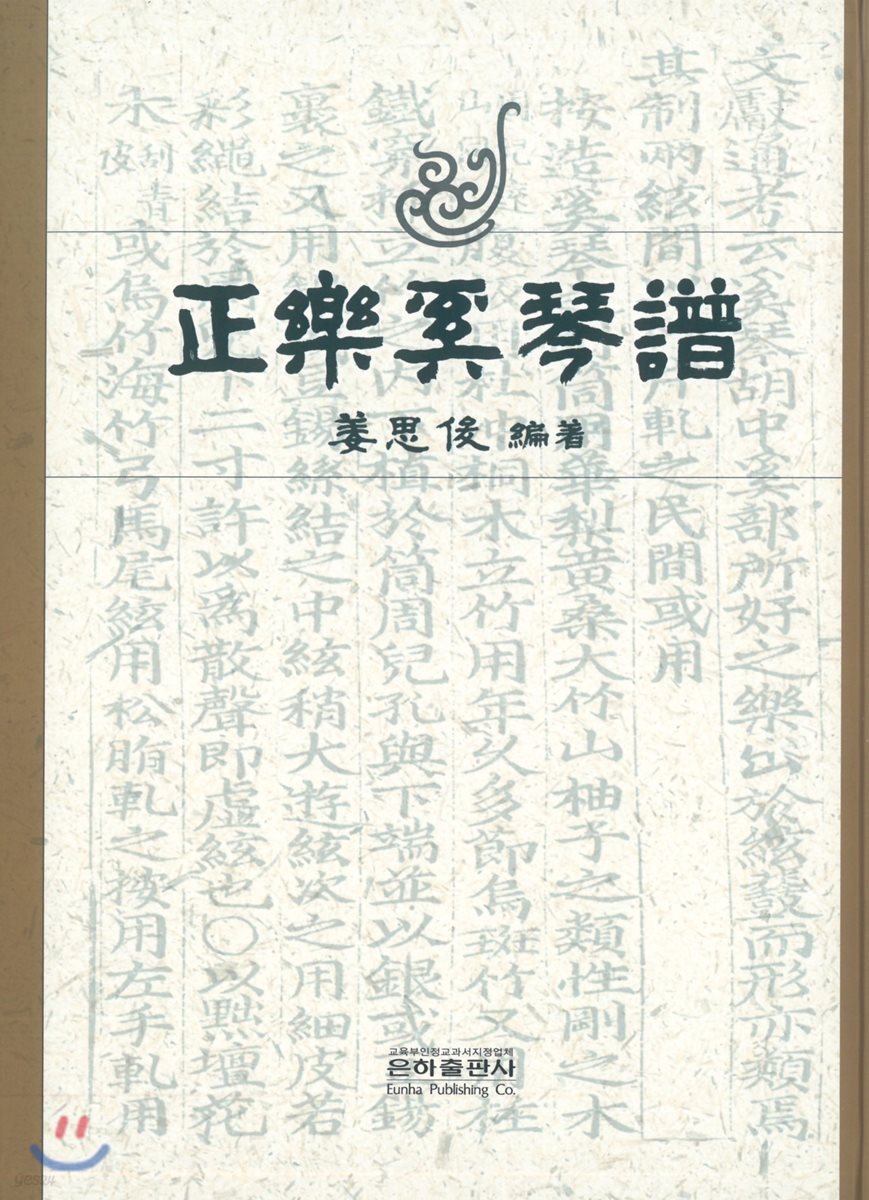 正樂奚琴譜
姜思俊 編著
文獻通考云奚琴胡中奚部所好之樂出於絃鼗而形亦類焉
其制兩絃間 片軋之民間或用
按造奚琴 筒 華梨黃桑大竹山柚子之類性剛之木
腹 桐木立竹用年久多節烏斑竹又用柱
鐵穿 植於筒周兒孔與下端並以銀或錫
裹之又用 錫絲結之中絃稍大遊絃次之用細皮若
彩繩結於 下二寸許以爲散聲卽虛絃也○以點堙花
木刮靑皮或烏竹海竹弓馬尾絃用松脂軋之按用左手軋用
교육부인정교과서지정업체
은하출판사
Eunha Publishing Co.
yes24